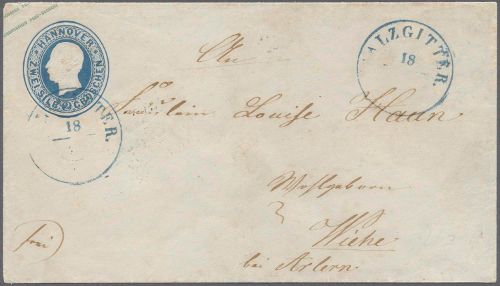 HANNOVER
ZWEI SILB. GROSCHEN
2
ALZGITTER.
18
TTER.
18
An
Fräulein Louise Haun
Wohlgeborn
Wiehe
bei Artern
frei